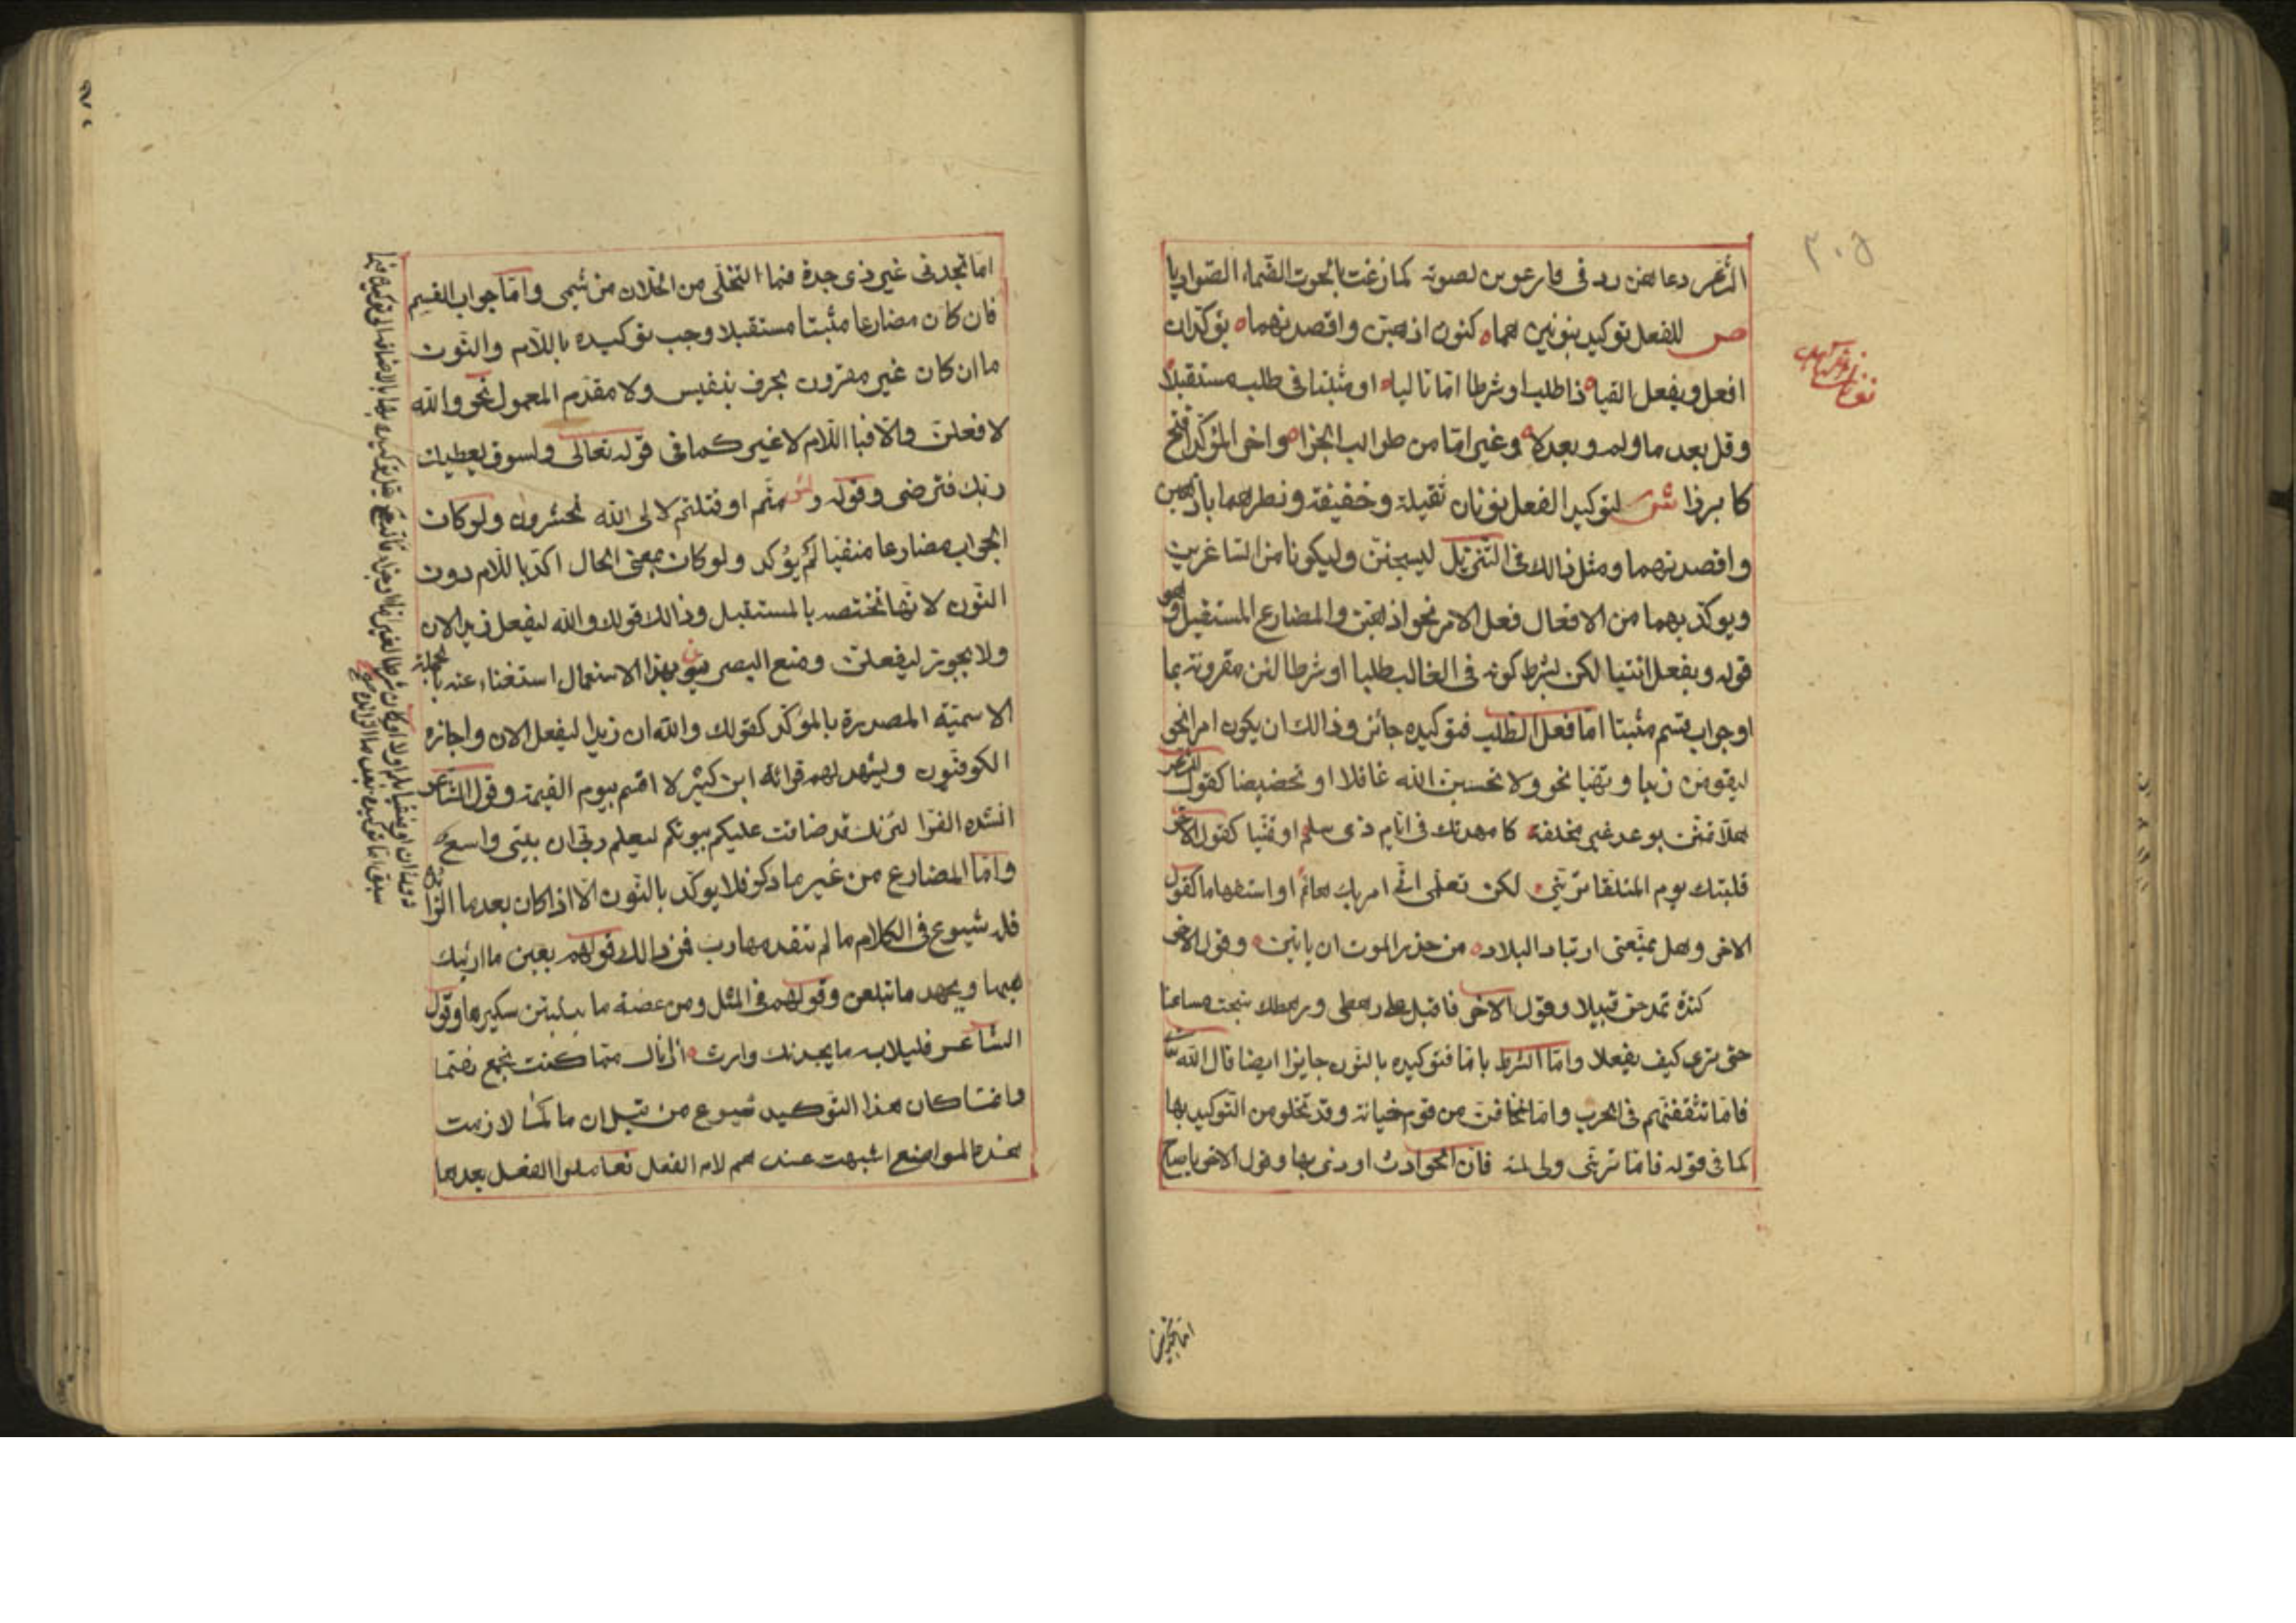 الشاعر دعاهن ردفى فارعوين لصوته كما رغت بالحوت الظماء الصواديا
ص للفعل توكيد بنونين هما كنونى اذهبن واقصدنهما يؤكدان
افعل ويفعل اتيا ذا طلب او شرطا اما تاليا او مثبتا فى طلب مستقبلا
وقل بعد ما ولم وبعد لا وغير اما من طوالب الجزا واخر المؤكد افتح
كابرزا ش لتوكيد الفعل نونان ثقيلة وخفيفة ونظيرهما باذهبن
واقصدنهما ومثل ذالك فى التنزيل ليسجنن وليكونا من الصاغرين
ويوكد بهما من الافعال فعل الامر نحو اذهبن والمضارع المستقبل وهو
قوله ويفعل اتيا لكن بشرط كونه فى الغالب طلبا او شرطا لان مقرونة بما
او جواب قسم مثبتا اما فعل الطلب فتوكيده جائز وذالك ان يكون امرا نحو
ليقومن زيد او نهيا نحو ولا تحسبن الله غافلا او تحضيضا كقول الشاعر
هلا تمنن بوعد غير مخلفة كما عهدتك فى ايام ذى سلم او تمنيا كقول الاخر
فليتك يوم الملتقا ترينى لكى تعلمى انى امرء بك هائم او استفهاما كقول
الاخر وهل يمنعنى ارتياد البلاد من حذر الموت ان ياتين وقول الاخر
كندة تمدحن قبيلا وقول الاخر فاقبل على رهطى ورهطك نبحث مساعينا
حتى ترى كيف يفعلا واما الشرط باما فتوكيده بالنون جايزا ايضا قال الله تعالى
فاما تثقفنهم فى الحرب واما تخافن من قوم خيانة وقد تخلو من التوكيد بها
كما فى قوله فاما ترينى ولى لمة فان الحوادث اودى بها وقول الاخر يا صاح
اما تجدنى غير ذى جدة فما التخلى من الخلان من شيمى واما جواب القسم
فان كان مضارعا مثبتا مستقبلا وجب توكيده باللام والنون
ما ان كان غير مقرون بحرف تنفيس ولا مقدم المعمول نحو والله
لافعلن والا فبا اللام لا غير كما فى قوله تعالى ولسوف يعطيك
ربك فترضى وقوله ولئن متم او قتلتم لا لى الله تحشرون ولو كان
الجواب مضارعا منفيا لم يؤكد ولو كان بمعنى الحال اكد باللام دون
النون لانها تختص بالمستقبل وذالك قولك والله ليفعل زيد الان
ولا يجوز ليفعلن ومنع البصريون بهذا الاستعمال استغناء عنه بالجملة
الاسمية المصدرة بالمؤكد كقولك والله ان زيدا ليفعل الان واجازه
الكوفيون ويشهد لهم قرائة ابن كثير لا اقسم بيوم القيمة وقول الشاعر
انشده الفرا لئن تك قد ضاقت عليكم بيوتكم ليعلم ربى ان بيتى واسع
واما المضارع من غير ما ذكر فلا يوكد بالنون الا اذا كان بعد ما الزائدة
فله شيوع فى الكلام ما لم تتقدمها رب فمن ذالك قولهم بعين ما ارينك
ههنا وبجهد ما تبلغن وقولهم فى المثل ومن عضة ما ينبتن شكيرها وقول
الشاعر قليلا به ما يحمدنك وارث اذا نال مما كنت تجمع مغنما
وانما كان هذا التوكيد شيوع من قبل ان ما لما لازمت
هذه المواضع اشبهت عندهم لام الفعل فعاملوا الفعل بعدها